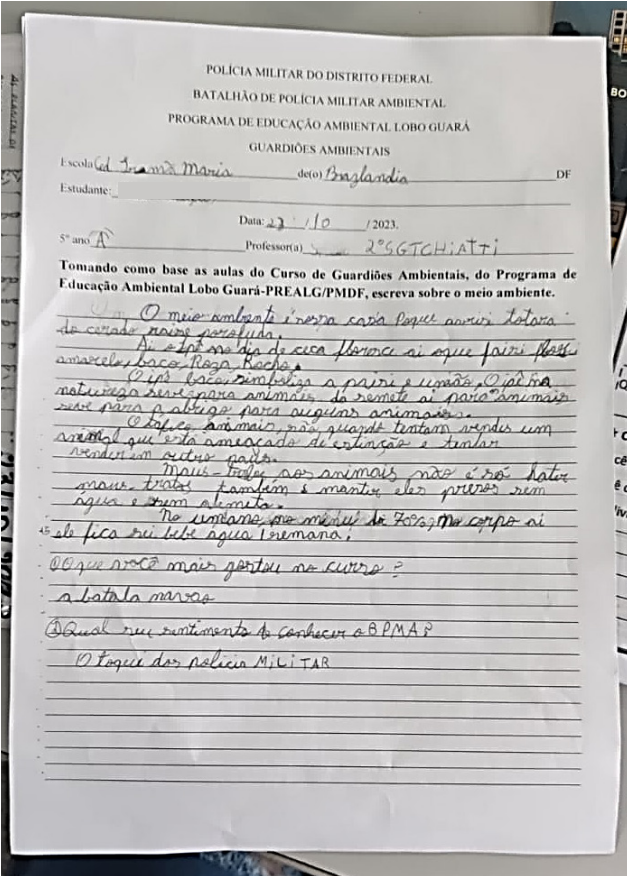 POLÍCIA MILITAR DO DISTRITO FEDERAL
BATALHÃO DE POLÍCIA MILITAR AMBIENTAL
PROGRAMA DE EDUCAÇÃO AMBIENTAL LOBO GUARÁ
GUARDIÕES AMBIENTAIS
Escola Ced Irmã Maria de(o) Brazlandia DF
Estudante:
Data: /10 /2023.
5º ano A Professor(a) 2º SGT CHiATTi
Tomando como base as aulas do Curso de Guardiões Ambientais, do Programa de
Educação Ambiental Lobo Guará-PREALG/PMDF, escreva sobre o meio ambiente.
O meio ambiente é nossa casa Poque
do cerado
Ai o no dia de ceca floresce ai oque
amarelo, baco, Roza, Rocho.
O ipê baco, simboliza a e união, O
natureza serve para animais da semete ai para animais
seve para o abrigo para auguns animais.
O animais, são quando tentam vender um
animal que está ameaçado de estinção e tentar
vender em outro país.
Maus-tratos aos animais não é só bater
maus-tratos também é manter eles presos sem
água e sem
No umano, no 70%, no corpo ai
ele fica sei bebe água 1 semana!
① O que você mais gostou no curso?
a batala navao
② Qual seu sentimento de conhecer o BPMA?
O toque dos policia MiLiTAR